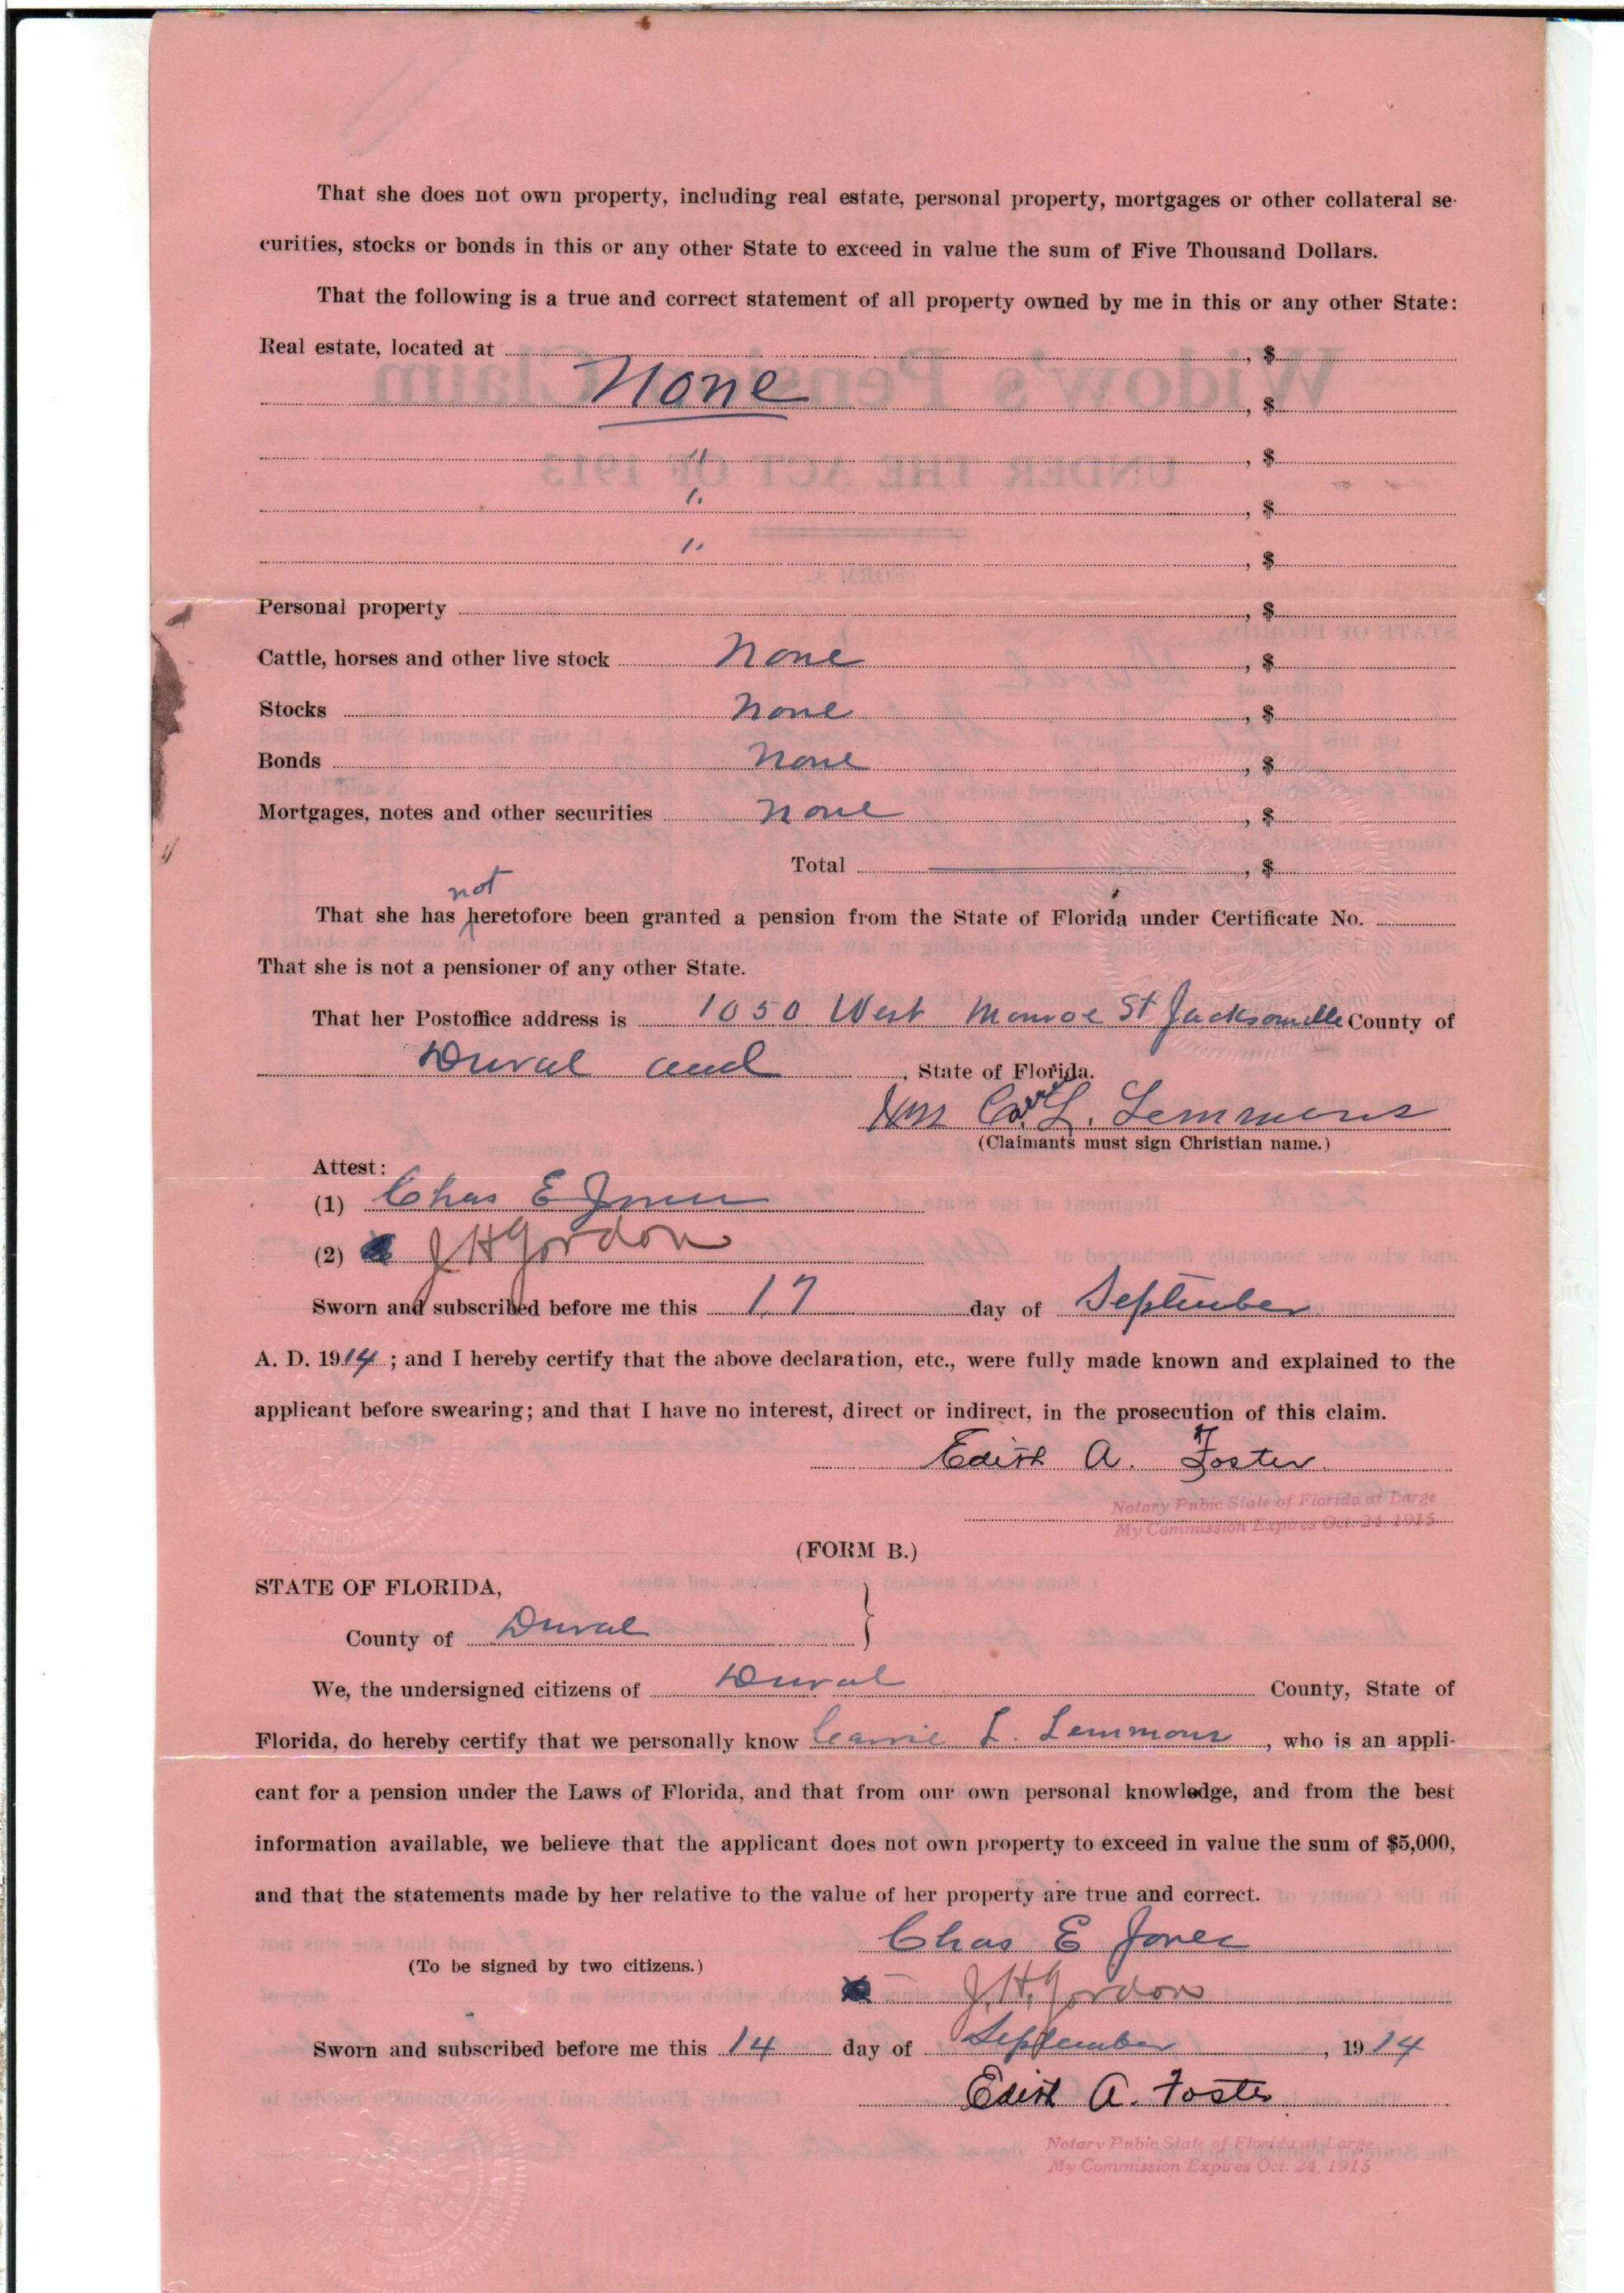 That she does not own property, including real estate, personal property, mortgages or other collateral se-
curities, stocks or bonds in this or any other State to exceed in value the sum of Five Thousand Dollars.
That the following is a true and correct statement of all property owned by me in this or any other State:
Real estate, located at , $
None , $
" , $
" , $
" , $
Personal property , $
Cattle, horses and other live stock None , $
Stocks None , $
Bonds None , $
Mortgages, notes and other securities None , $
Total , $
not
That she has heretofore been granted a pension from the State of Florida under Certificate No.
That she is not a pensioner of any other State.
That her Postoffice address is 1050 West Monroe St Jacksonville County of
Duval and , State of Florida.
Mrs L. Lemmons
(Claimants must sign Christian name.)
Attest:
(1) Chas E Jones
(2) J H Gordon
Sworn and subscribed before me this 17 day of September
A. D. 1914 ; and I hereby certify that the above declaration, etc., were fully made known and explained to the
applicant before swearing; and that I have no interest, direct or indirect, in the prosecution of this claim.
Edith A. Foster
Notary Pubic State of Florida at Large
My Commission Expires Oct. 24, 1915
(FORM B.)
STATE OF FLORIDA,
County of Duval }
We, the undersigned citizens of Duval County, State of
Florida, do hereby certify that we personally know Carrie L. Lemmons , who is an appli-
cant for a pension under the Laws of Florida, and that from our own personal knowledge, and from the best
information available, we believe that the applicant does not own property to exceed in value the sum of $5,000,
and that the statements made by her relative to the value of her property are true and correct.
Chas E Jones
(To be signed by two citizens.)
J. H. Gordon
Sworn and subscribed before me this 14 day of September , 1914
Edith A. Foster
Notary Pubic State of Florida at Large
My Commission Expires Oct. 24, 1915